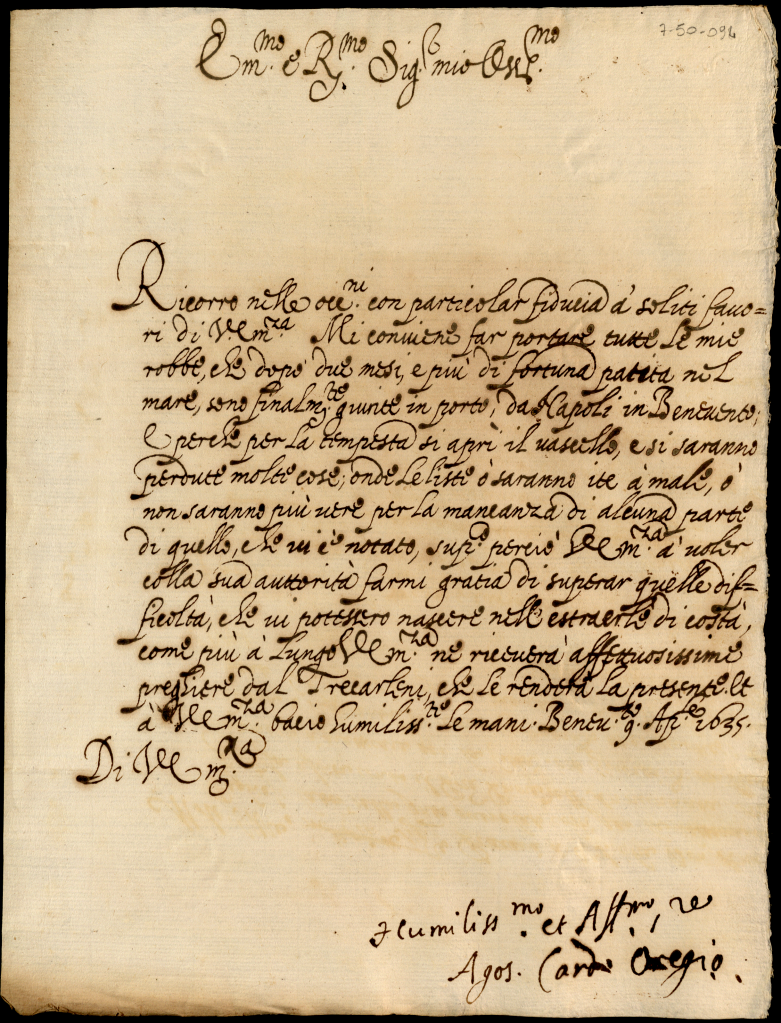 7-50-094
Em.mo e R.mo Sig.r mio Oss.mo
Ricorro nelle occ.ni con particolar fiducia a' soliti favo=
ri di V. Em.za Mi conviene far portare tutte le mie
robbe, che dopo due mesi, e più di fortuna patita nel
mare, sono finalm.te giunte in porto, da Napoli in Benevento;
E perche per la tempesta si aprì il vascello, e si saranno
perdute molte cose; onde le liste ò saranno ite à male, ò
non saranno più vere per la mancanza di alcuna parte
di quello, che vi è notato, sup.co perciò V. Em.za à voler
colla sua autorità farmi gratia di superar quelle dif=
ficoltà, che vi potessero nascere nelle estraerle di costà,
come più à lungo V. Em.za ne riceverà affettuosissime
preghiere dal Trecarleni, che le renderà la presente. Et
à V. Em.za bacio humiliss.te le mani. Benev.to 9. Ap.le 1635.
Di V. Em.za
Humiliss.mo et Aff.mo, re
Agos. Card. Oregio.